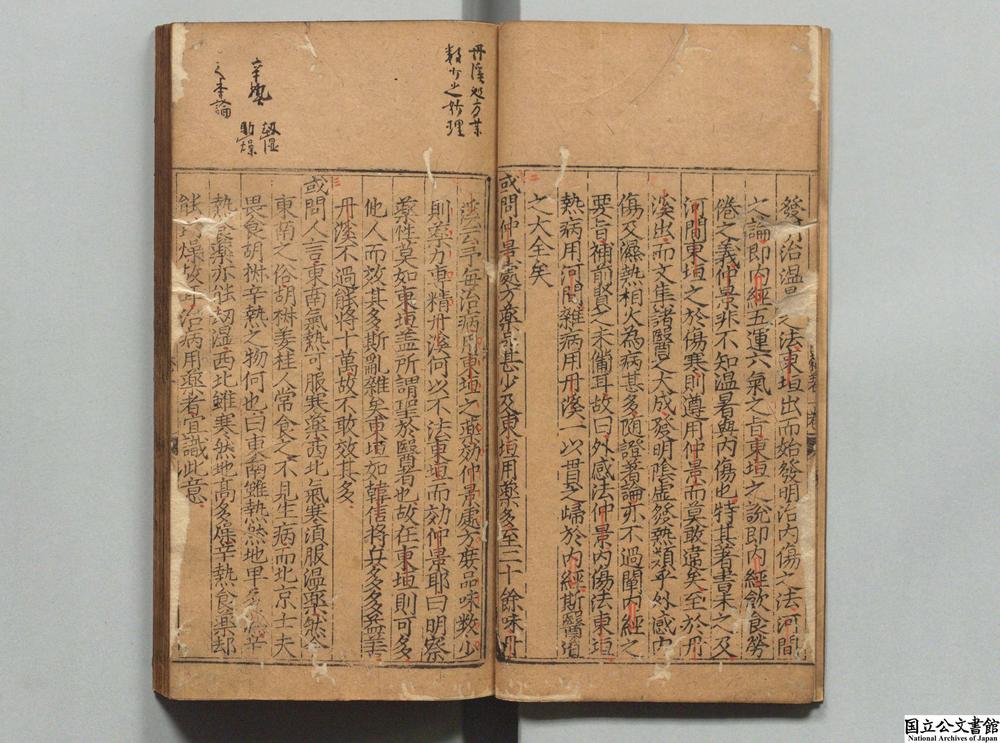 發明治溫暑之法東垣出而始發明治內傷之法河間
之論即內經五運六氣之旨東垣之說即內經飲食勞
倦之義仲景非不知溫暑與內傷也特其著書未之及
河間東垣之於傷寒則遵用仲景而莫敢違矣至於丹
溪出而又集諸賢之大成發明陰虛發熱類乎外感內
傷及濕熱相火為病甚多隨證著論亦不過闡內經之
要旨補前賢之未備耳故曰外感法仲景內傷法東垣
熱病用河間雜病用丹溪一以貫之歸於內經斯醫道
之大全矣
或問仲景處方藥品甚少及東垣用藥多至二十餘味丹
溪云予每治病用東垣之藥効仲景處方庶品味數少
則藥力專精丹溪何以不法東垣而効仲景耶曰明察
藥性莫如東垣蓋所謂聖於醫者也故在東垣則可多
他人而效其多斯亂雜矣東垣如韓信將兵多多益善
丹溪不過能將十萬故不敢效其多
或問人言東南氣熱可服寒藥西北氣寒須服溫藥然今
東南之俗胡椒姜桂人常食之不見生病而北京士夫
畏食胡椒辛熱之物何也曰東南雖熱然地卑多濕辛
熱食藥亦能劫濕西北雖寒然地高多燥辛熱食藥却
能助燥故耳治病用藥者宜識此意
丹溪処方葉
数少之妙理
辛熱
之本論
劫湿
助燥
国立公文書館
National Archives of Japan